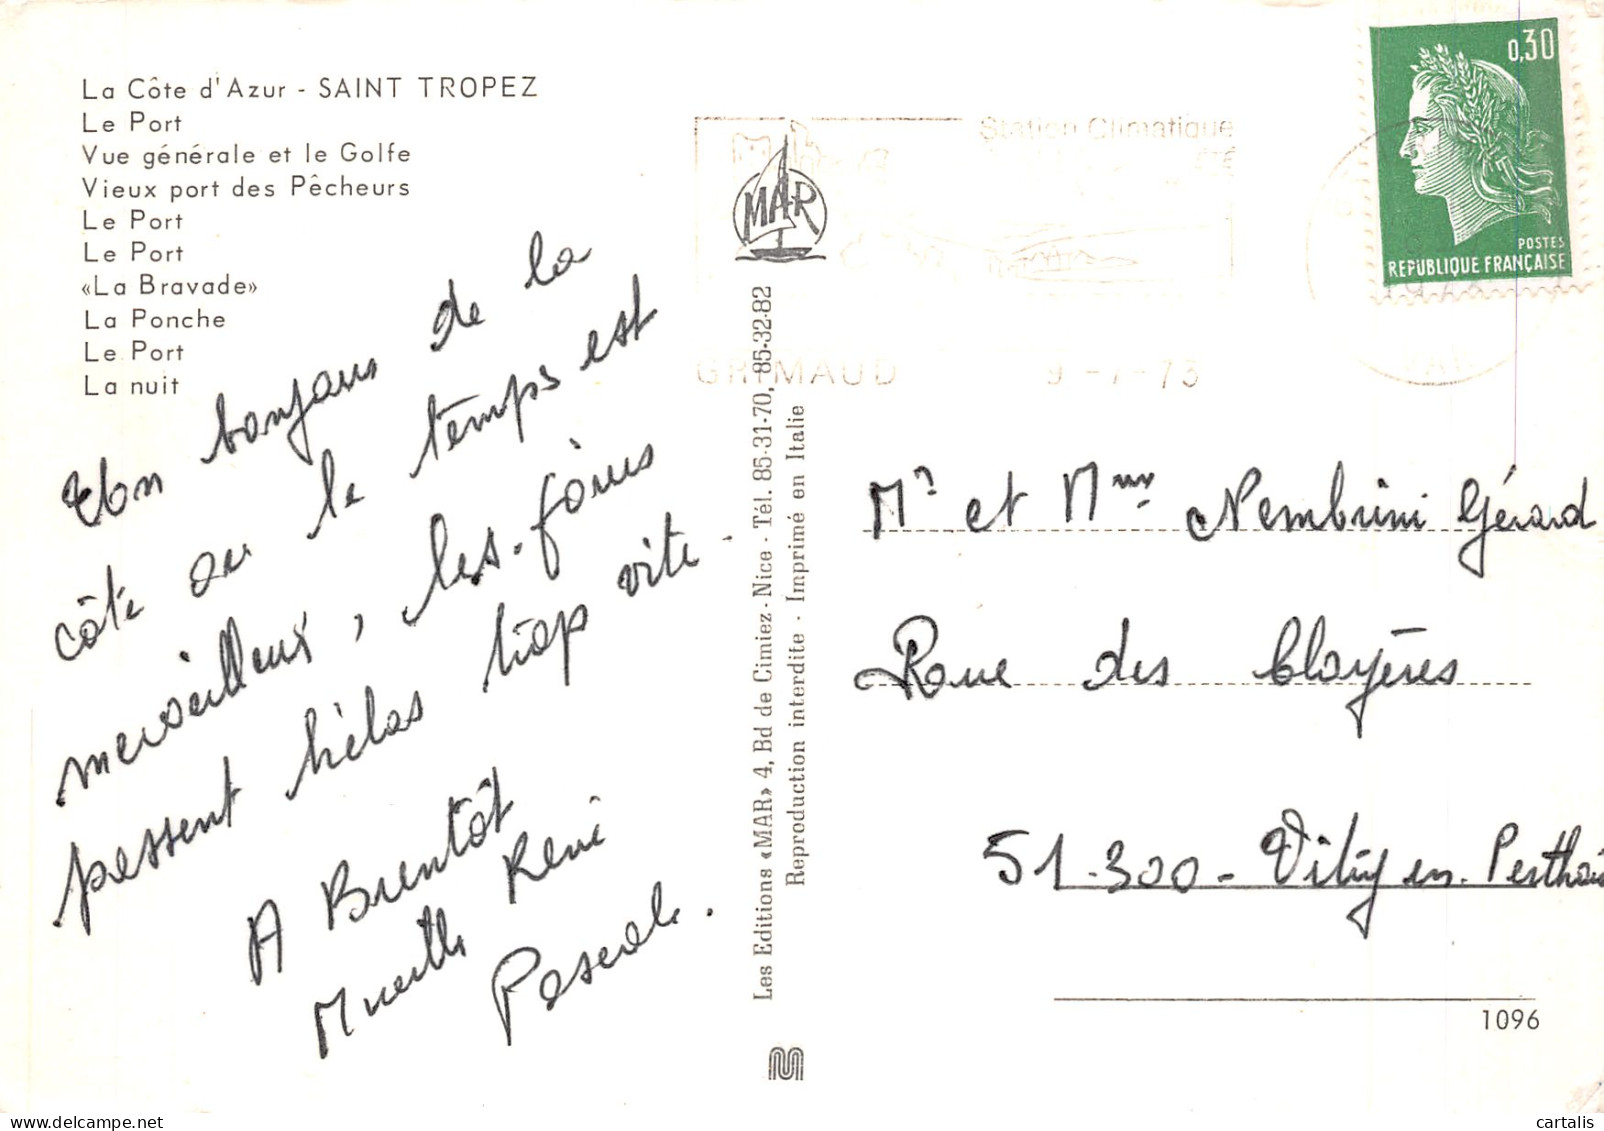 La Côte d'Azur - SAINT TROPEZ
Le Port
Vue générale et le Golfe
Vieux port des Pêcheurs
Le Port
Le Port
«La Bravade»
La Ponche
Le Port
La nuit
bonjour de la
côte ou le temps est
merveilleux, les jours
passent hélas trop vite.
A Bientôt
René
Pascale.
MAR
Les Editions «MAR» 4, Bd de Cimiez - Nice - Tél. 85-31-70, 85-32-82
Reproduction interdite - Imprimé en Italie
Station Climatique
ÉTÉ
GRIMAUD 9-7-73
VAR
0,30
POSTES
REPUBLIQUE FRANÇAISE
Mr et Mme Nembrini Gérard
Roue des Cloyères
51.300 - Vitry en Perthois
1096
cartalis sur www.delcampe.net